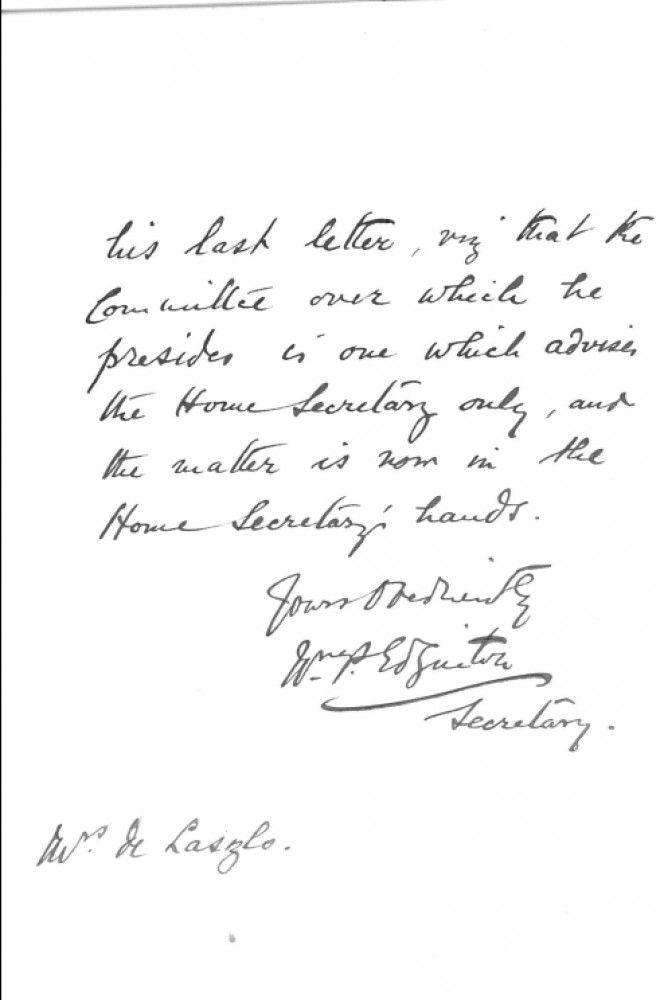 his last letter, viz that the
Committee over which he
presides is one which advises
the Home Secretary only, and
the matter is now in the
Home Secretary's hands.
Yours Obediently
Wm P. Edginton
Secretary.
Mrs de Laszlo.